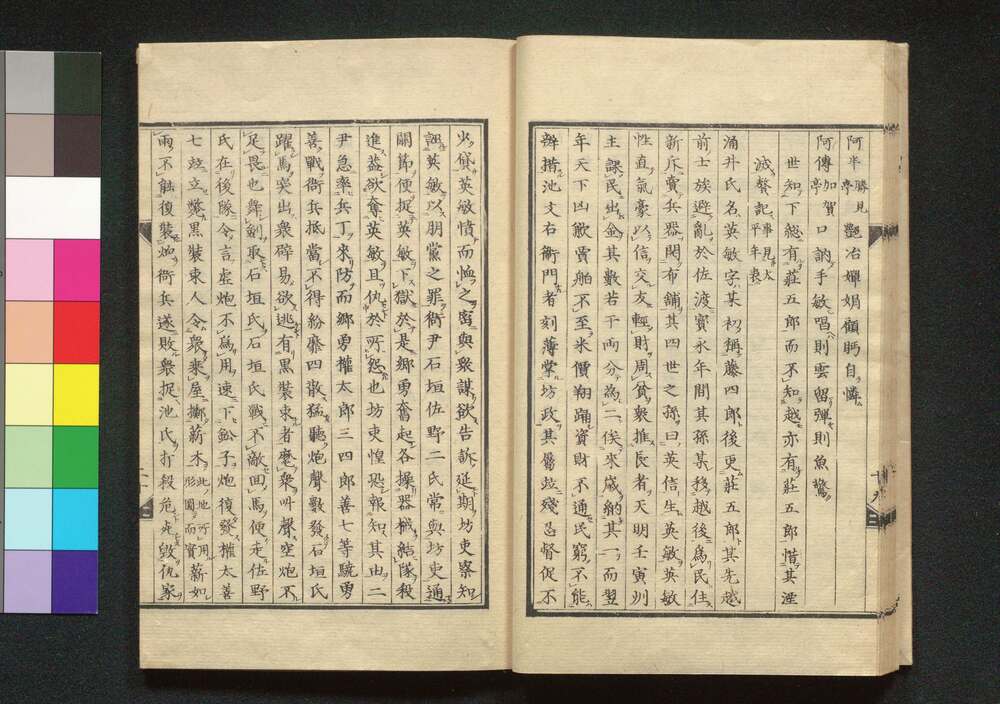 阿半勝見亭艷冶嬋娟顧眄自憐
阿傳加賀亭口訥手敏唱則雲留彈則魚驚
世知下總有莊五郎而不知越亦有莊五郎惜其湮
滅贅記事見太平年表
涌井氏名英敏字某初稱藤四郎後更莊五郎其先越
前士族避亂於佐渡寶永年間其孫某移越後為民住
新斥賣兵器閑布舖其四世之孫曰英信生英敏英敏
性直氣豪以信交友輕財周貧衆推長者天明壬寅州
主課民出金其數若干両分為二俟來歳納其一而翌
年天下凶歉賈舶不至米價翔踊資財不通民窮不能
辦措池文右衛門者刻薄掌坊政其醫歧殘忍督促不
少貸英敏憤而恤之密與衆謀欲告訴延期坊吏察知
誣英敏以朋黨之罪衙尹石垣佐野二氏常與坊吏通
關節便捉英敏下獄於是郷勇奮起各操器械結隊殺
進盖欲奪英敏且仇於所怨也坊吏惶恐報知其由二
尹急率兵丁來防而郷勇權太郎三四郎善七等驍勇
善戰衙兵抵當不得紛靡四散猛聽炮聲數發石垣氏
躍馬突出衆辟易欲逃有黒裝束者麾衆叫聲空炮不
足畏也舞劍取石垣氏石垣氏戰不敵回馬便走佐野
氏在後隊令言虚炮不為用速下鉛子炮復發權太善
七歧立斃黒裝束人令衆乘屋擲薪木此地所用薪如
形圓而實
雨不能復裝炮衙兵遂敗衆捉池氏打殺危走毀仇家